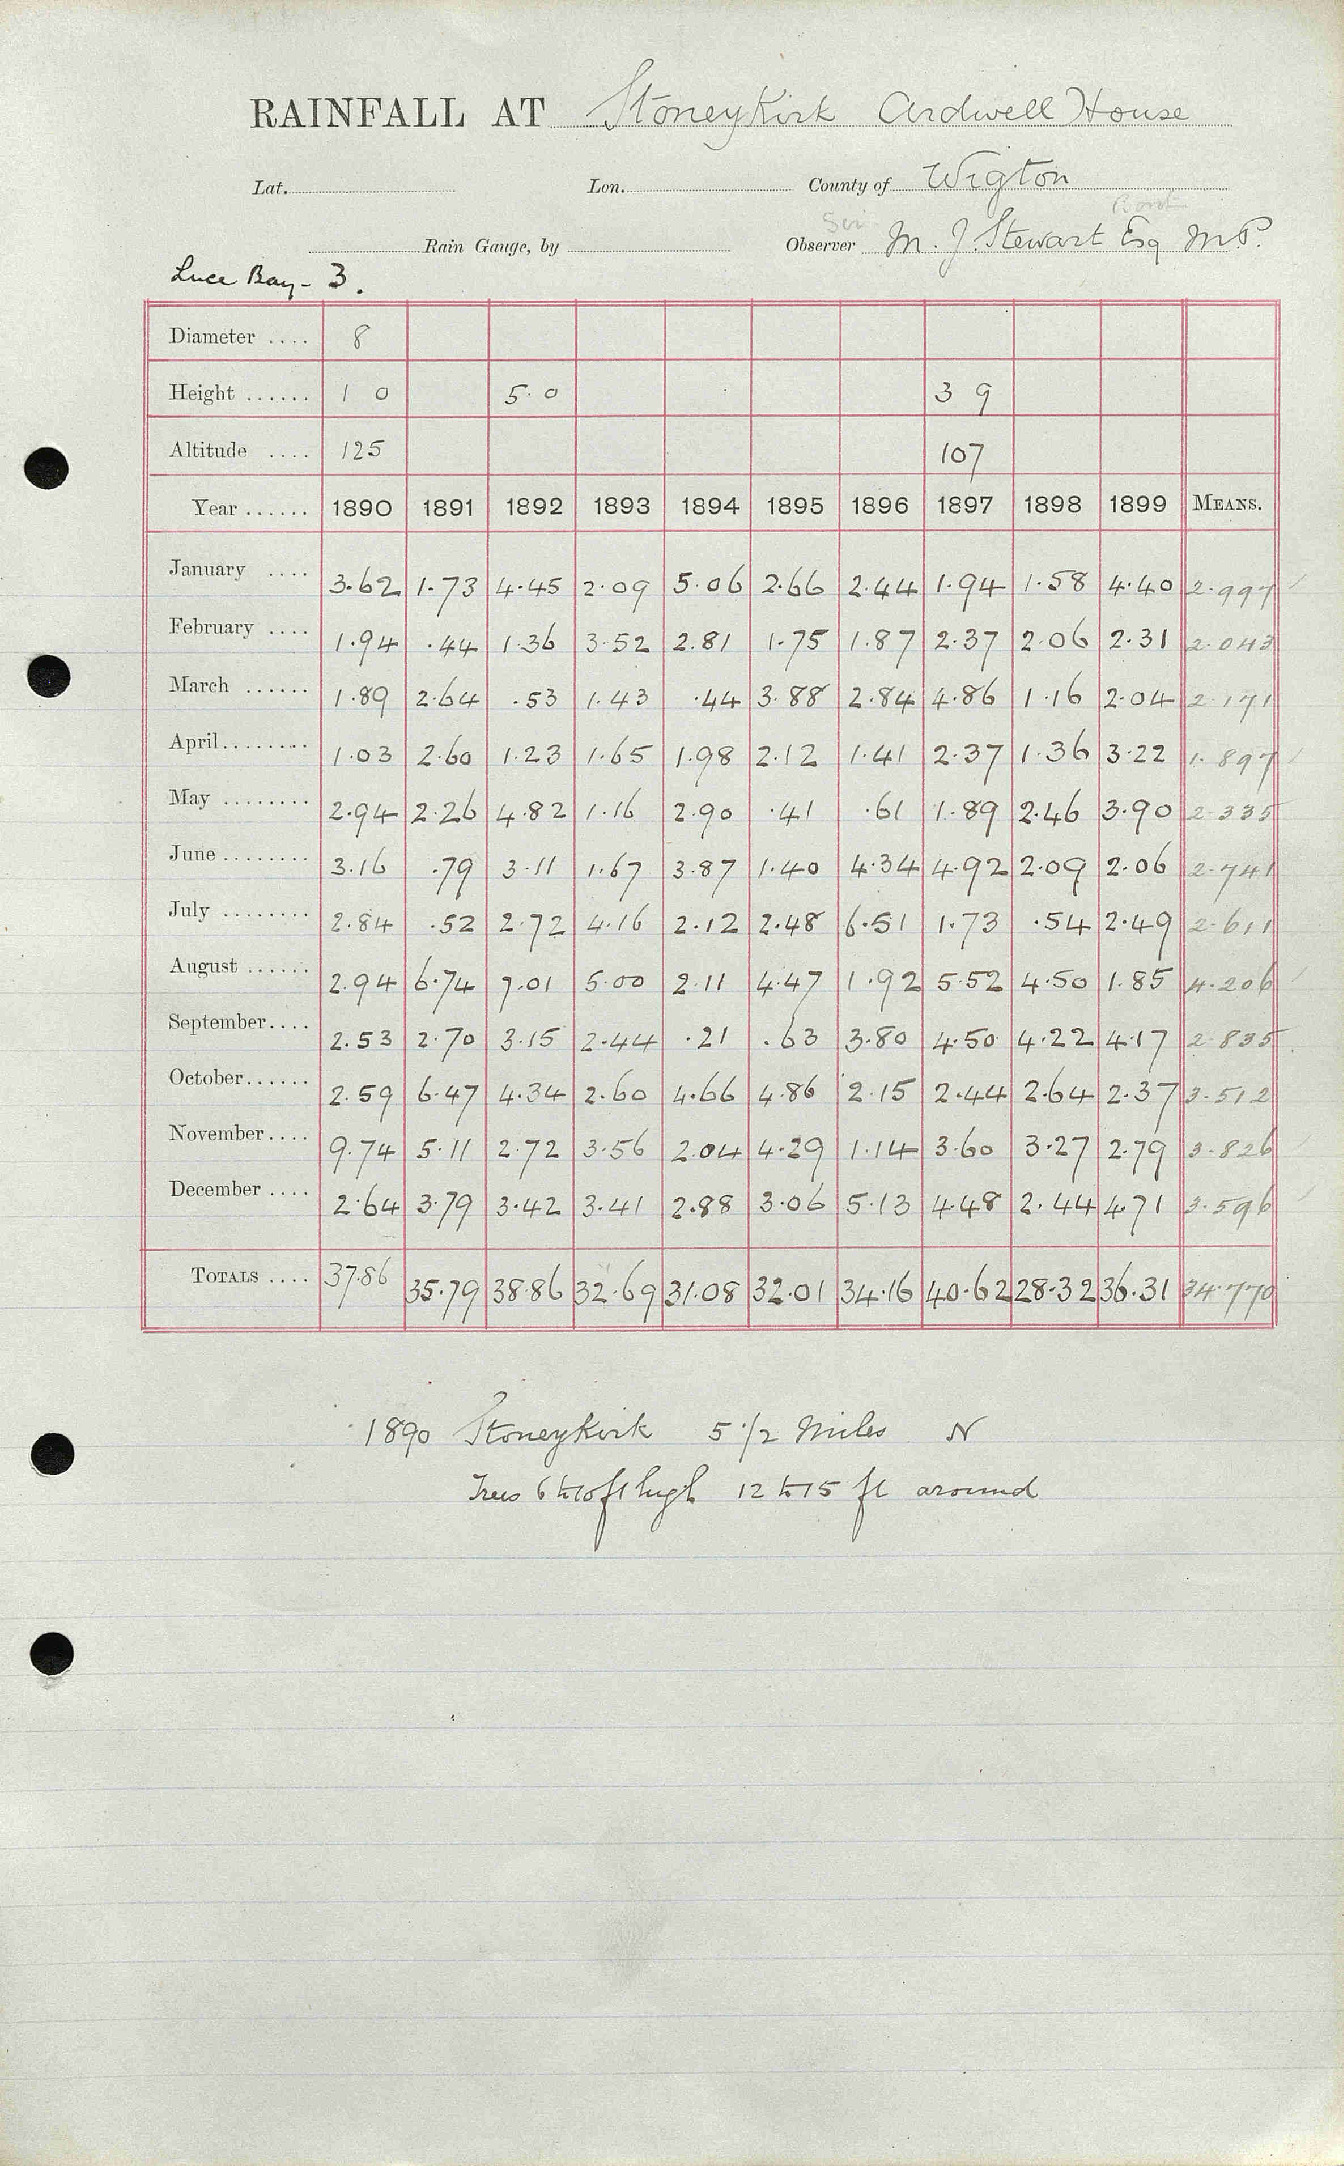 RAINFALL AT Stoneykirk Ardwell House
Lat. Lon. County of Wigton
Rain Gauge, by Observer M. J. Stewart Esq M.P.
Luce Bay - 3.
Diameter .... 8
Height ...... 1 0 5.0 3 9
Altitude .... 125 107
Year ...... 1890 1891 1892 1893 1894 1895 1896 1897 1898 1899 MEANS.
January .... 3.62 1.73 4.45 2.09 5.06 2.66 2.44 1.94 1.58 4.40 2.997
February .... 1.94 .44 1.36 3.52 2.81 1.75 1.87 2.37 2.06 2.31 2.043
March ...... 1.89 2.64 .53 1.43 .44 3.88 2.84 4.86 1.16 2.04 2.171
April........ 1.03 2.60 1.23 1.65 1.98 2.12 1.41 2.37 1.36 3.22 1.897
May ........ 2.94 2.26 4.82 1.16 2.90 .41 .61 1.89 2.46 3.90 2.335
June ........ 3.16 .79 3.11 1.67 3.87 1.40 4.34 4.92 2.09 2.06 2.741
July ........ 2.84 .52 2.72 4.16 2.12 2.48 6.51 1.73 .54 2.49 2.611
August ...... 2.94 6.74 7.01 5.00 2.11 4.47 1.92 5.52 4.50 1.85 4.206
September.... 2.53 2.70 3.15 2.44 .21 .63 3.80 4.50 4.22 4.17 2.835
October...... 2.59 6.47 4.34 2.60 4.66 4.86 2.15 2.44 2.64 2.37 3.512
November.... 9.74 5.11 2.72 3.56 2.04 4.29 1.14 3.60 3.27 2.79 3.826
December .... 2.64 3.79 3.42 3.41 2.88 3.06 5.13 4.48 2.44 4.71 3.596
TOTALS .... 37.86 35.79 38.86 32.69 31.08 32.01 34.16 40.62 28.32 36.31 34.770
1890 Stoneykirk 5 1/2 Miles N
Trees 6 to 10 ft high 12 to 15 ft around